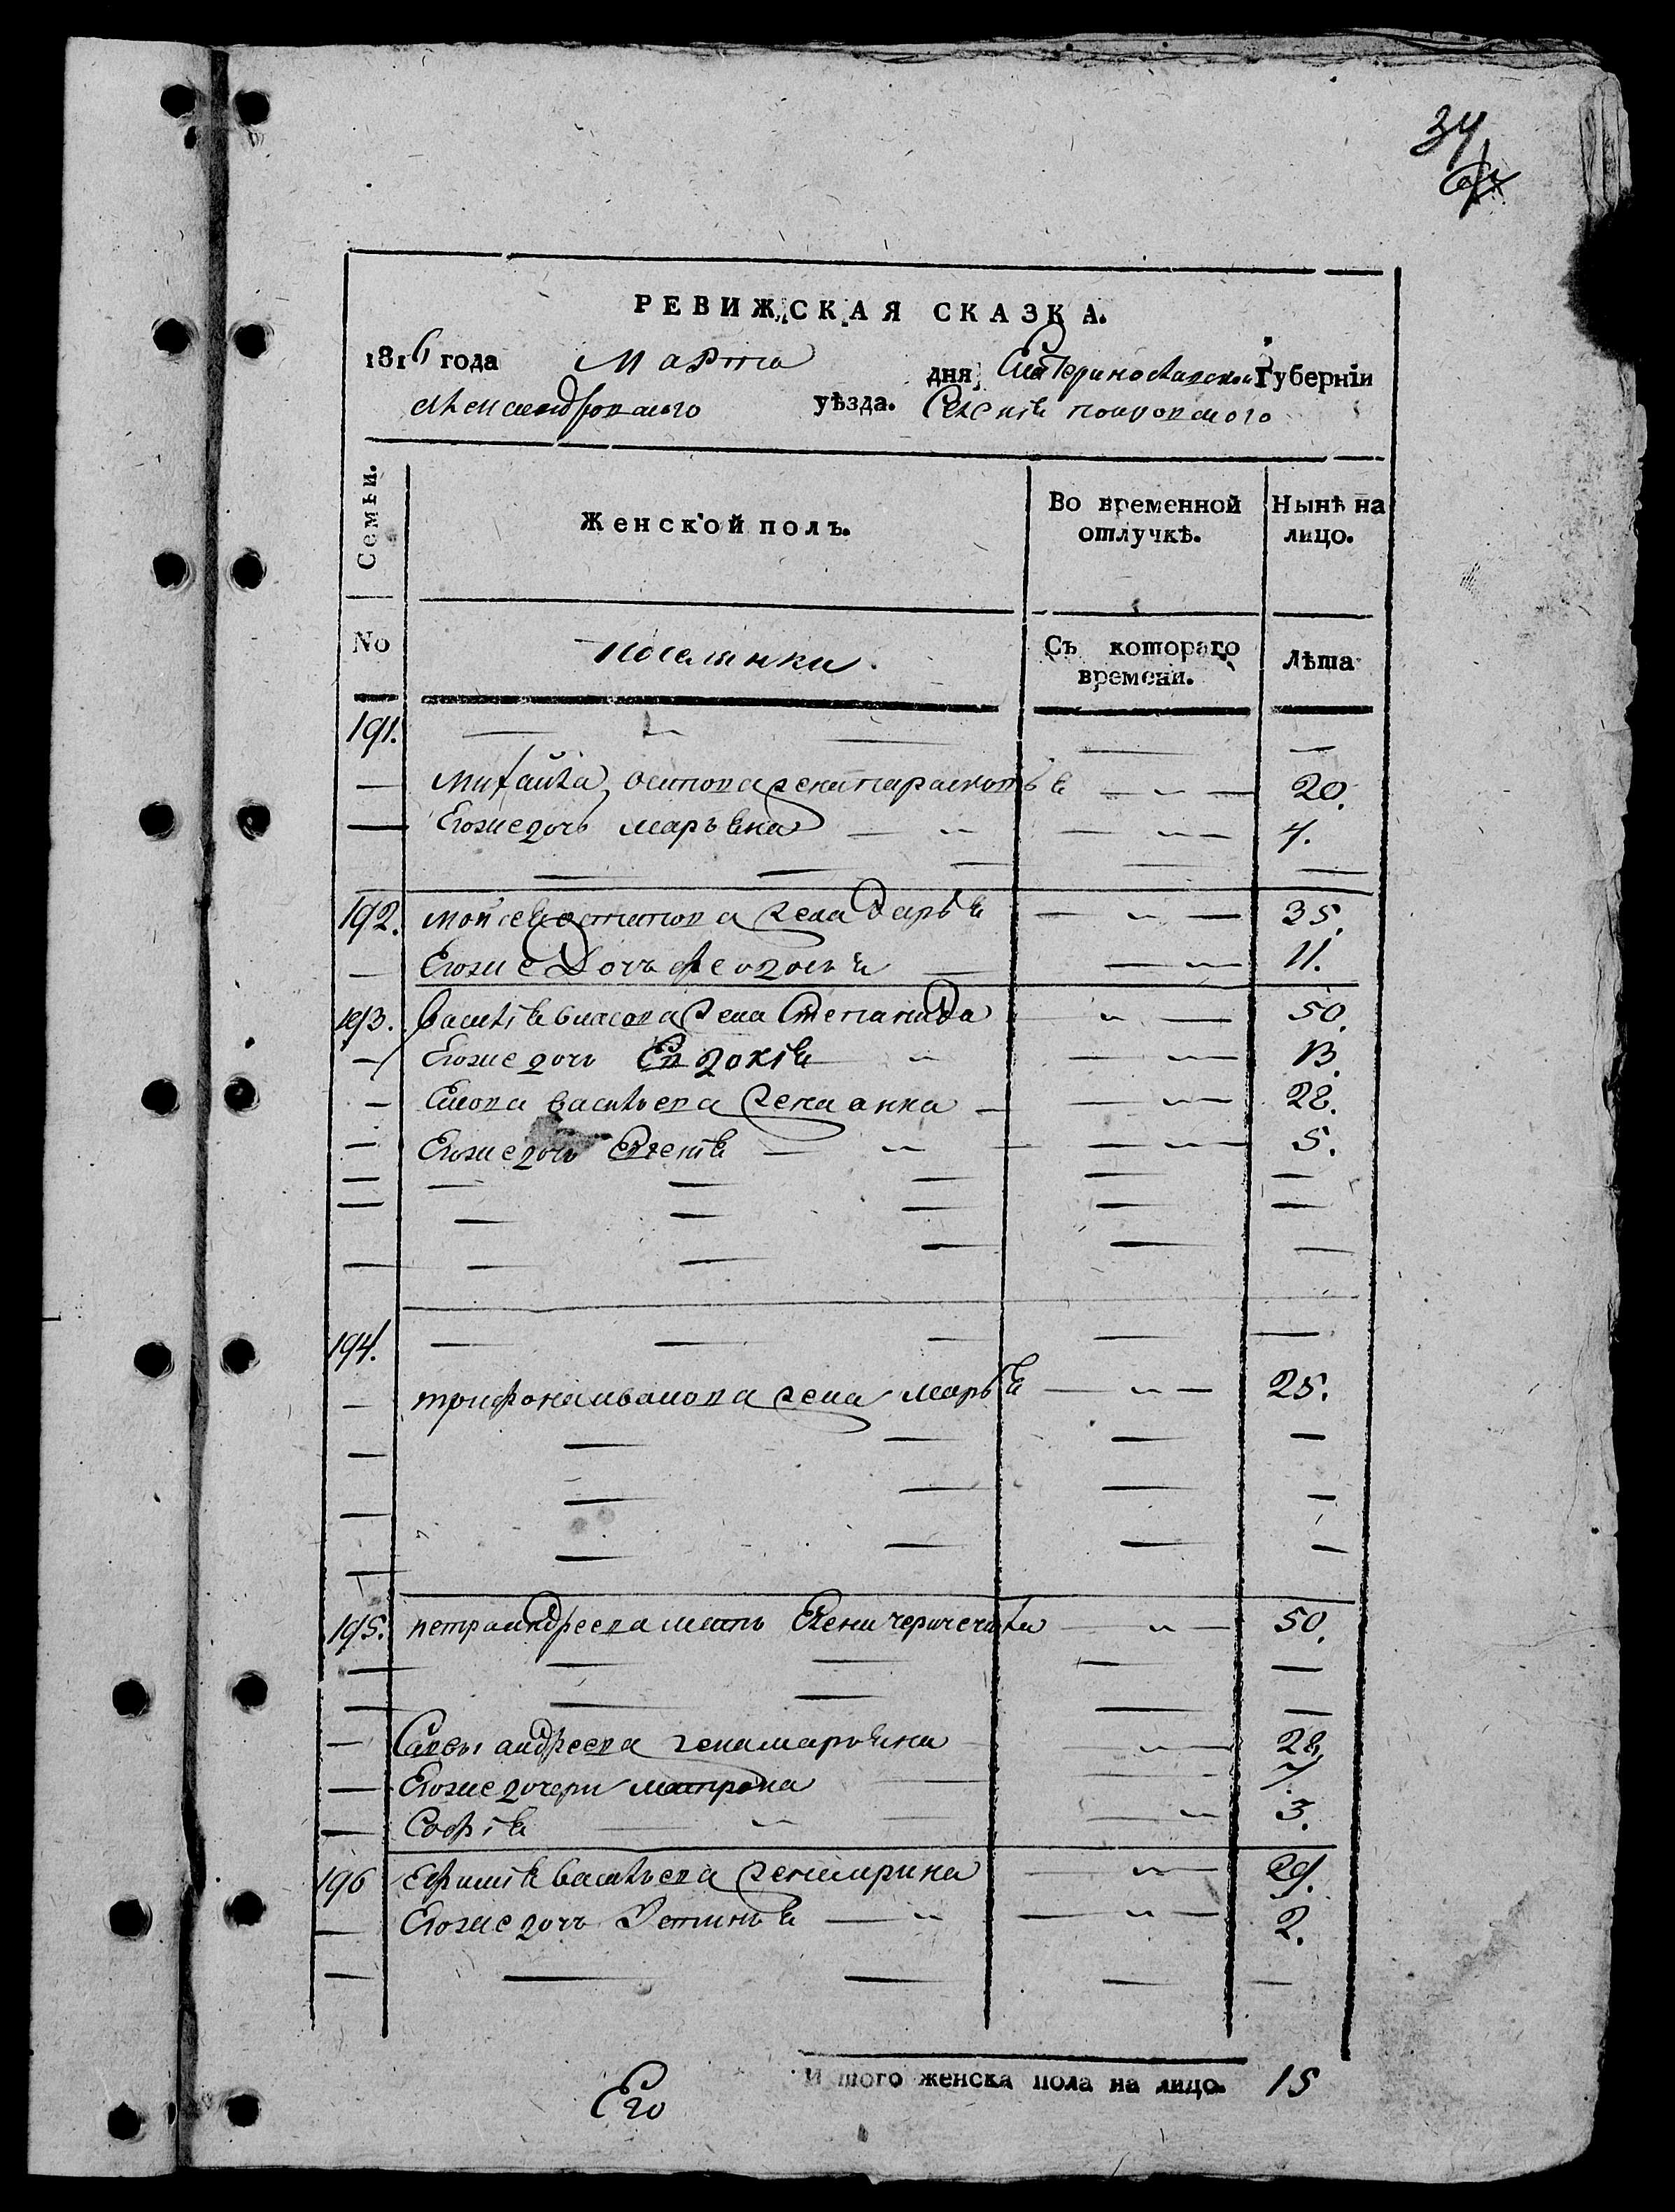 34
РЕВИЖСКАЯ СКАЗКА.
1816 года Марта дня, Екатеринославской Губерніи
Александровского уѣзда. Селенія покровского
Семьи.
Женской полъ.
Во временной отлучкѣ.
Нынѣ на лицо.
No
поселянки
Съ котораго времени.
Лѣта
191.
Михайла осипова жена парасковья 20.
Егожедочь марьяна 4.
192. мойсея остапова жена дарья 35.
Егоже Дочь федосья 11.
193. василія власова жена Степанида 50.
Егоже дочь Евдокія 13.
васильева жена анна 28.
Егоже дочь Евгенія 5.
194.
трифона иванова жена марья 25.
195. петра андреева мать Елена 50.
Савы андреева жена марьяна 28.
Егоже дочери матрона 7.
Софія 3.
196 Ефимія васильева жена ирина 29.
Егоже дочь Устинья 2.
И того женска пола на лицо. 15
Его